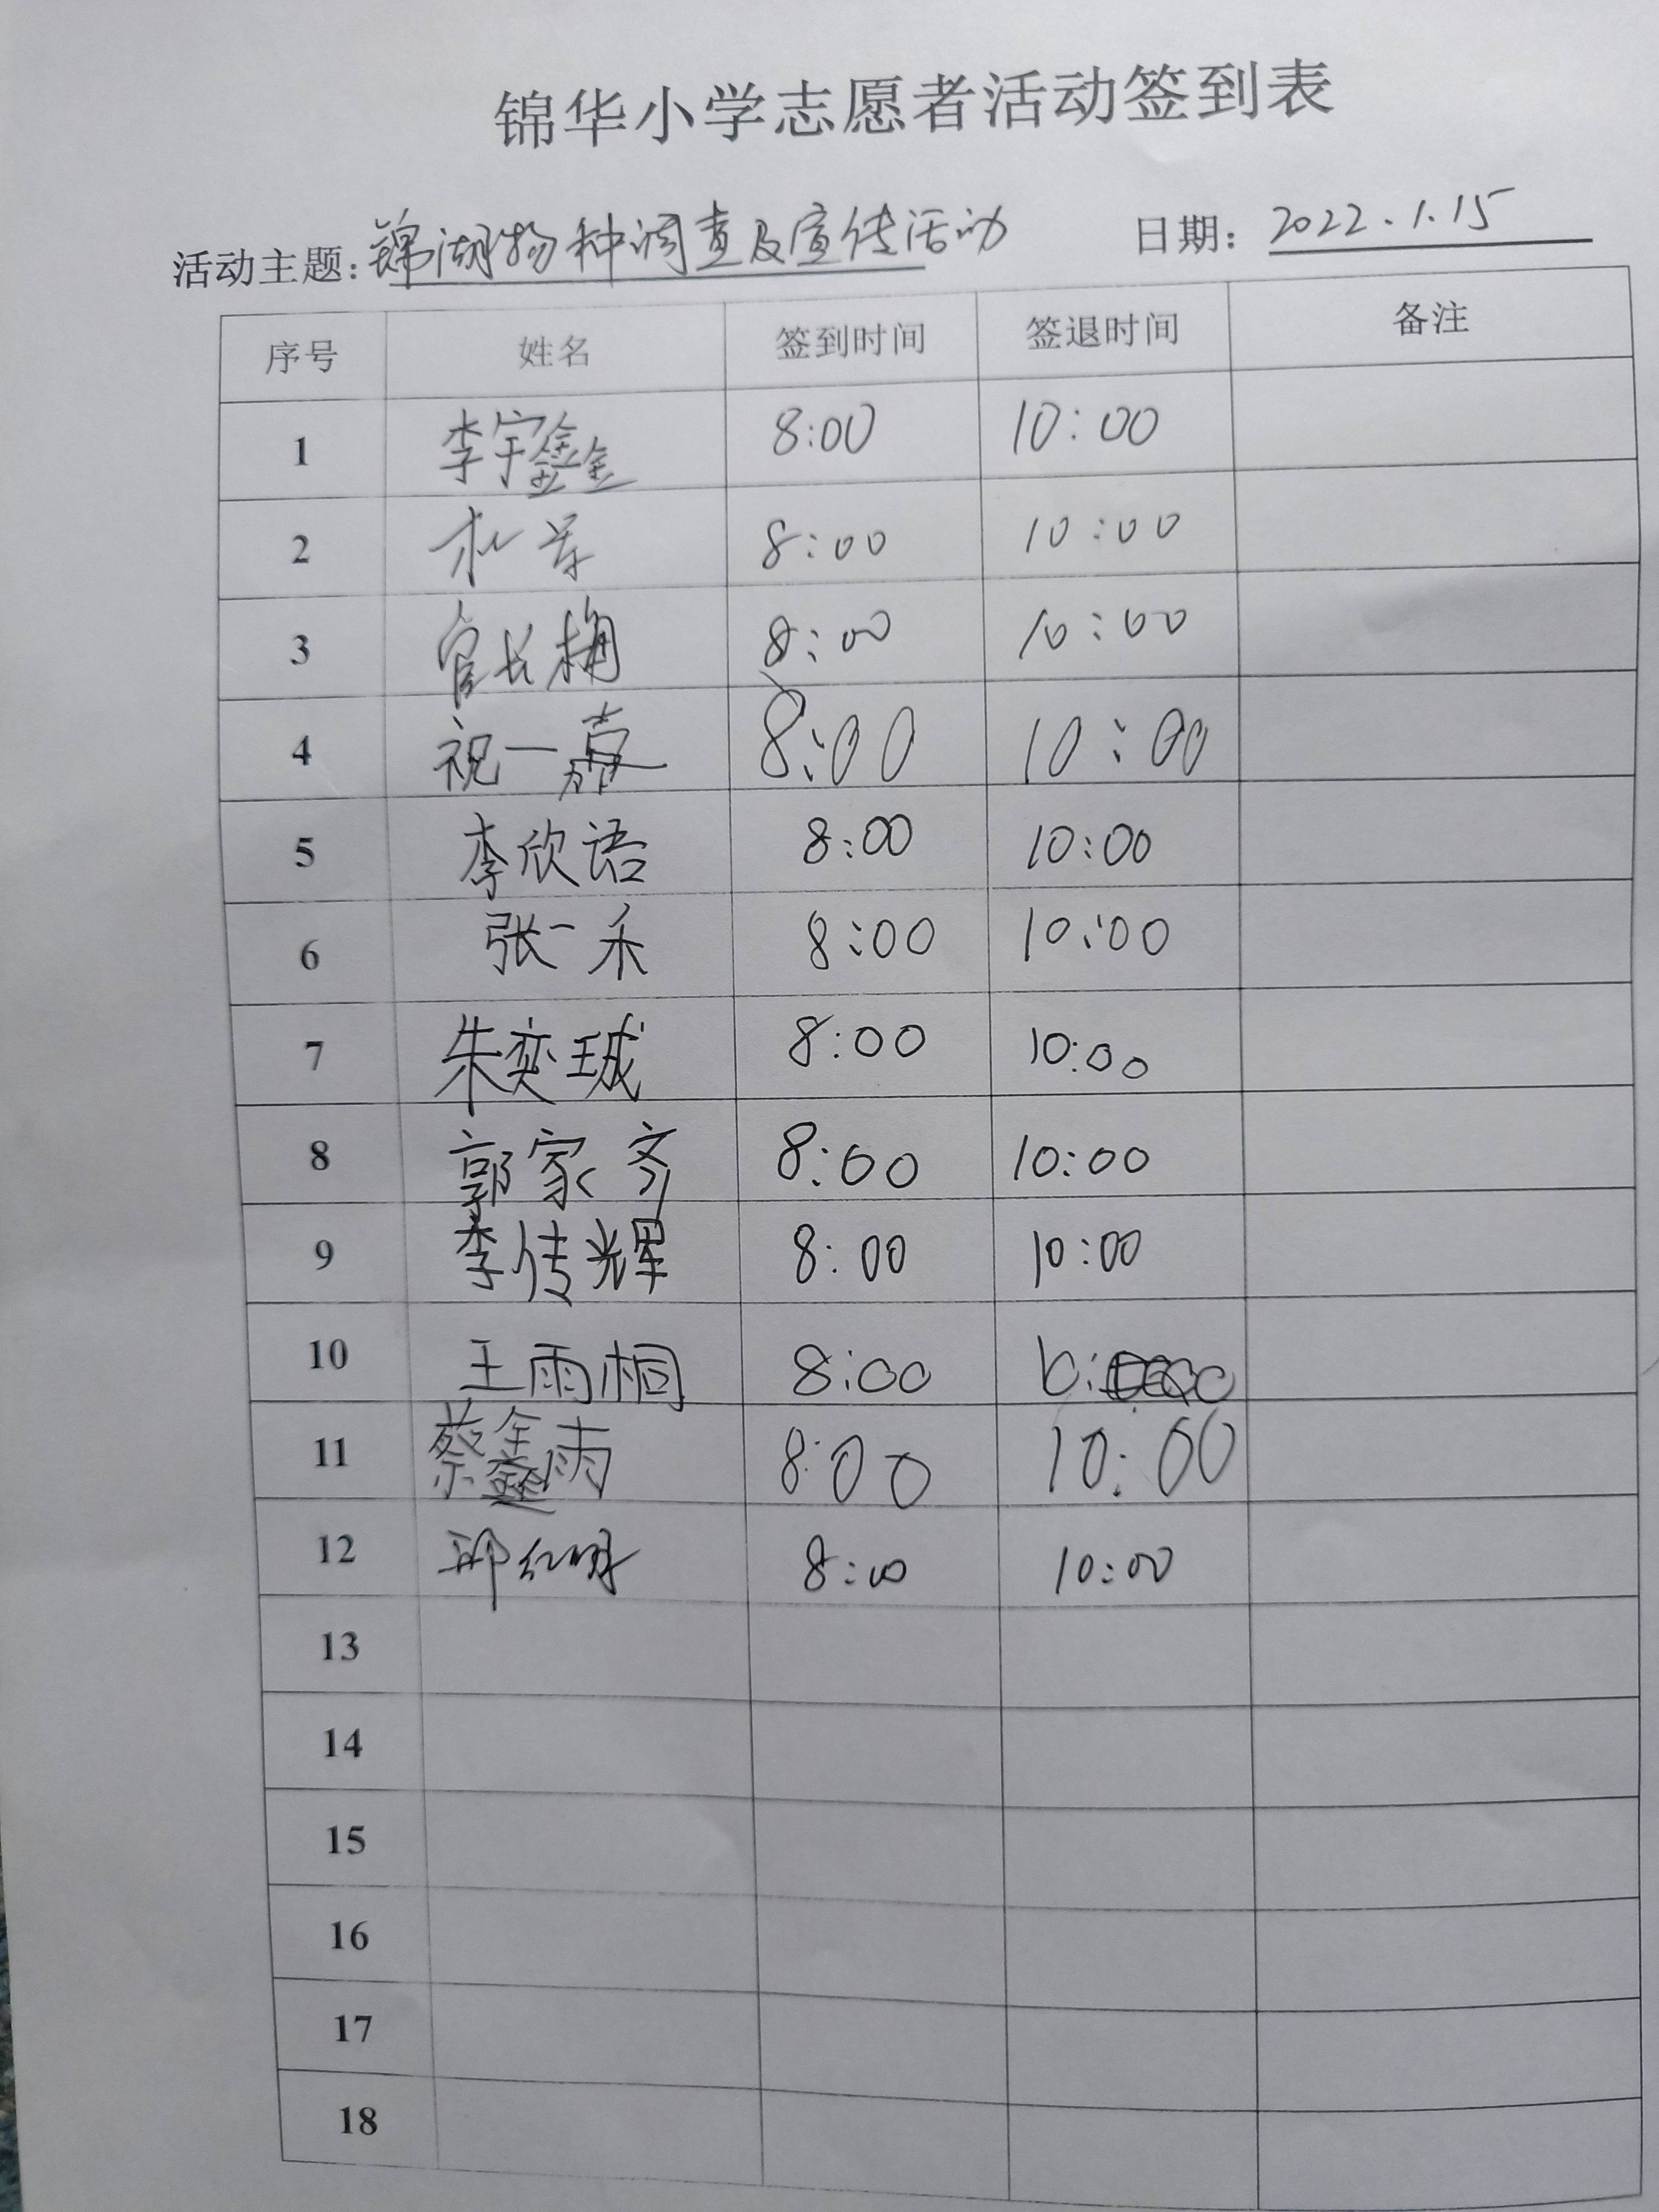 锦华小学志愿者活动签到表
活动主题：锦湖物种调查及宣传活动 日期：2022.1.15
序号 姓名 签到时间 签退时间 备注
1 李宇鑫 8:00 10:00
2 8:00 10:00
3 官长梅 8:00 10:00
4 祝一嘉 8:00 10:00
5 李欣语 8:00 10:00
6 张一禾 8:00 10:00
7 朱奕珹 8:00 10:00
8 郭家齐 8:00 10:00
9 李传辉 8:00 10:00
10 王雨桐 8:00
11 蔡鑫雨 8:00 10:00
12 8:00 10:00
13
14
15
16
17
18